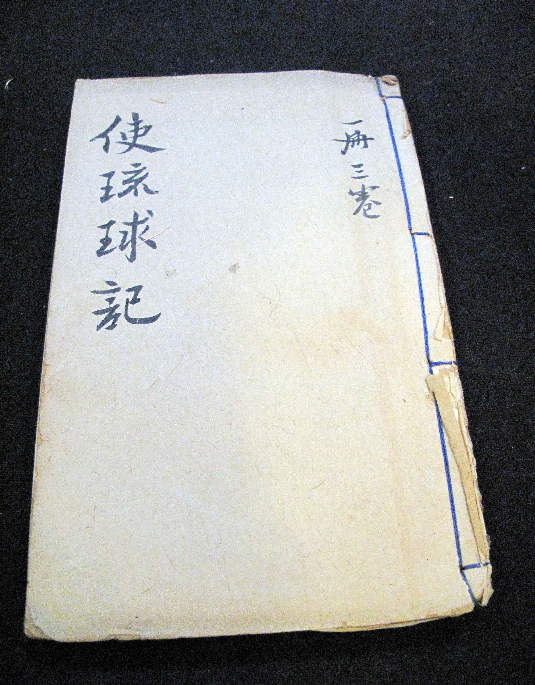 一冊三卷
使琉球記